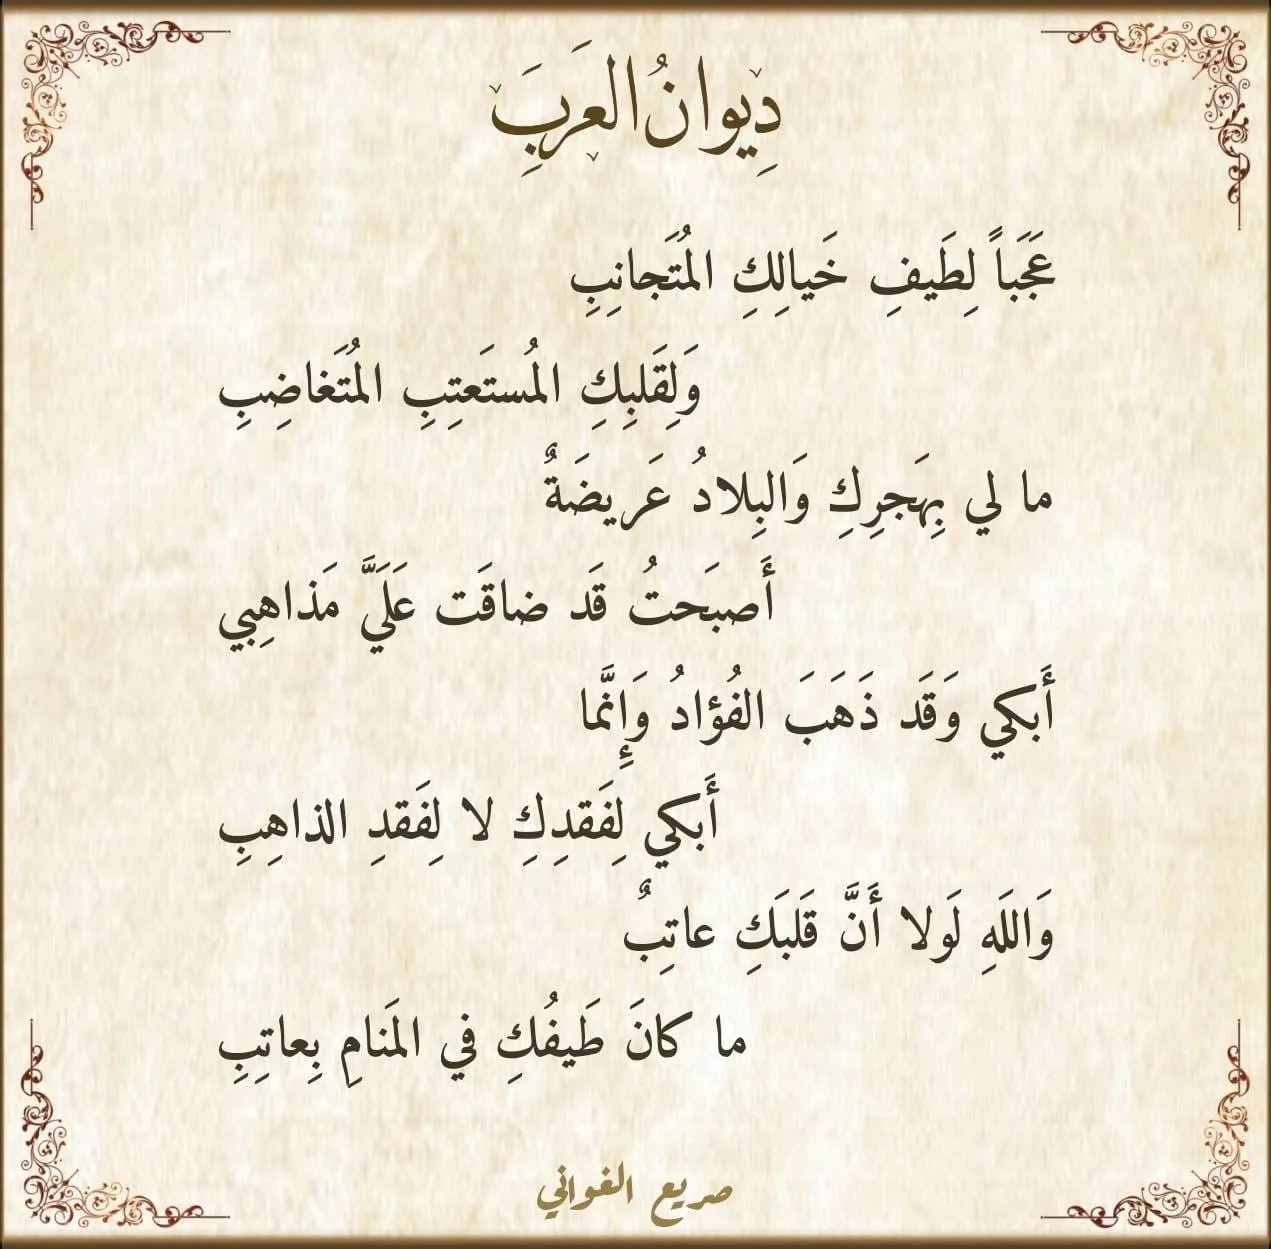 دِيوانُ العَرَبِ
عَجَباً لِطَيفِ خَيالِكِ المُتَجانِبِ
وَلِقَلبِكِ المُستَعتِبِ المُتَغاضِبِ
ما لي بِهَجرِكِ وَالبِلادُ عَريضَةٌ
أَصبَحتُ قَد ضاقَت عَلَيَّ مَذاهِبي
أَبكي وَقَد ذَهَبَ الفُؤادُ وَإِنَّما
أَبكي لِفَقدِكِ لا لِفَقدِ الذاهِبِ
وَاللَهِ لَولا أَنَّ قَلبَكِ عاتِبٌ
ما كانَ طَيفُكِ في المَنامِ بِعاتِبِ
صريع الغواني